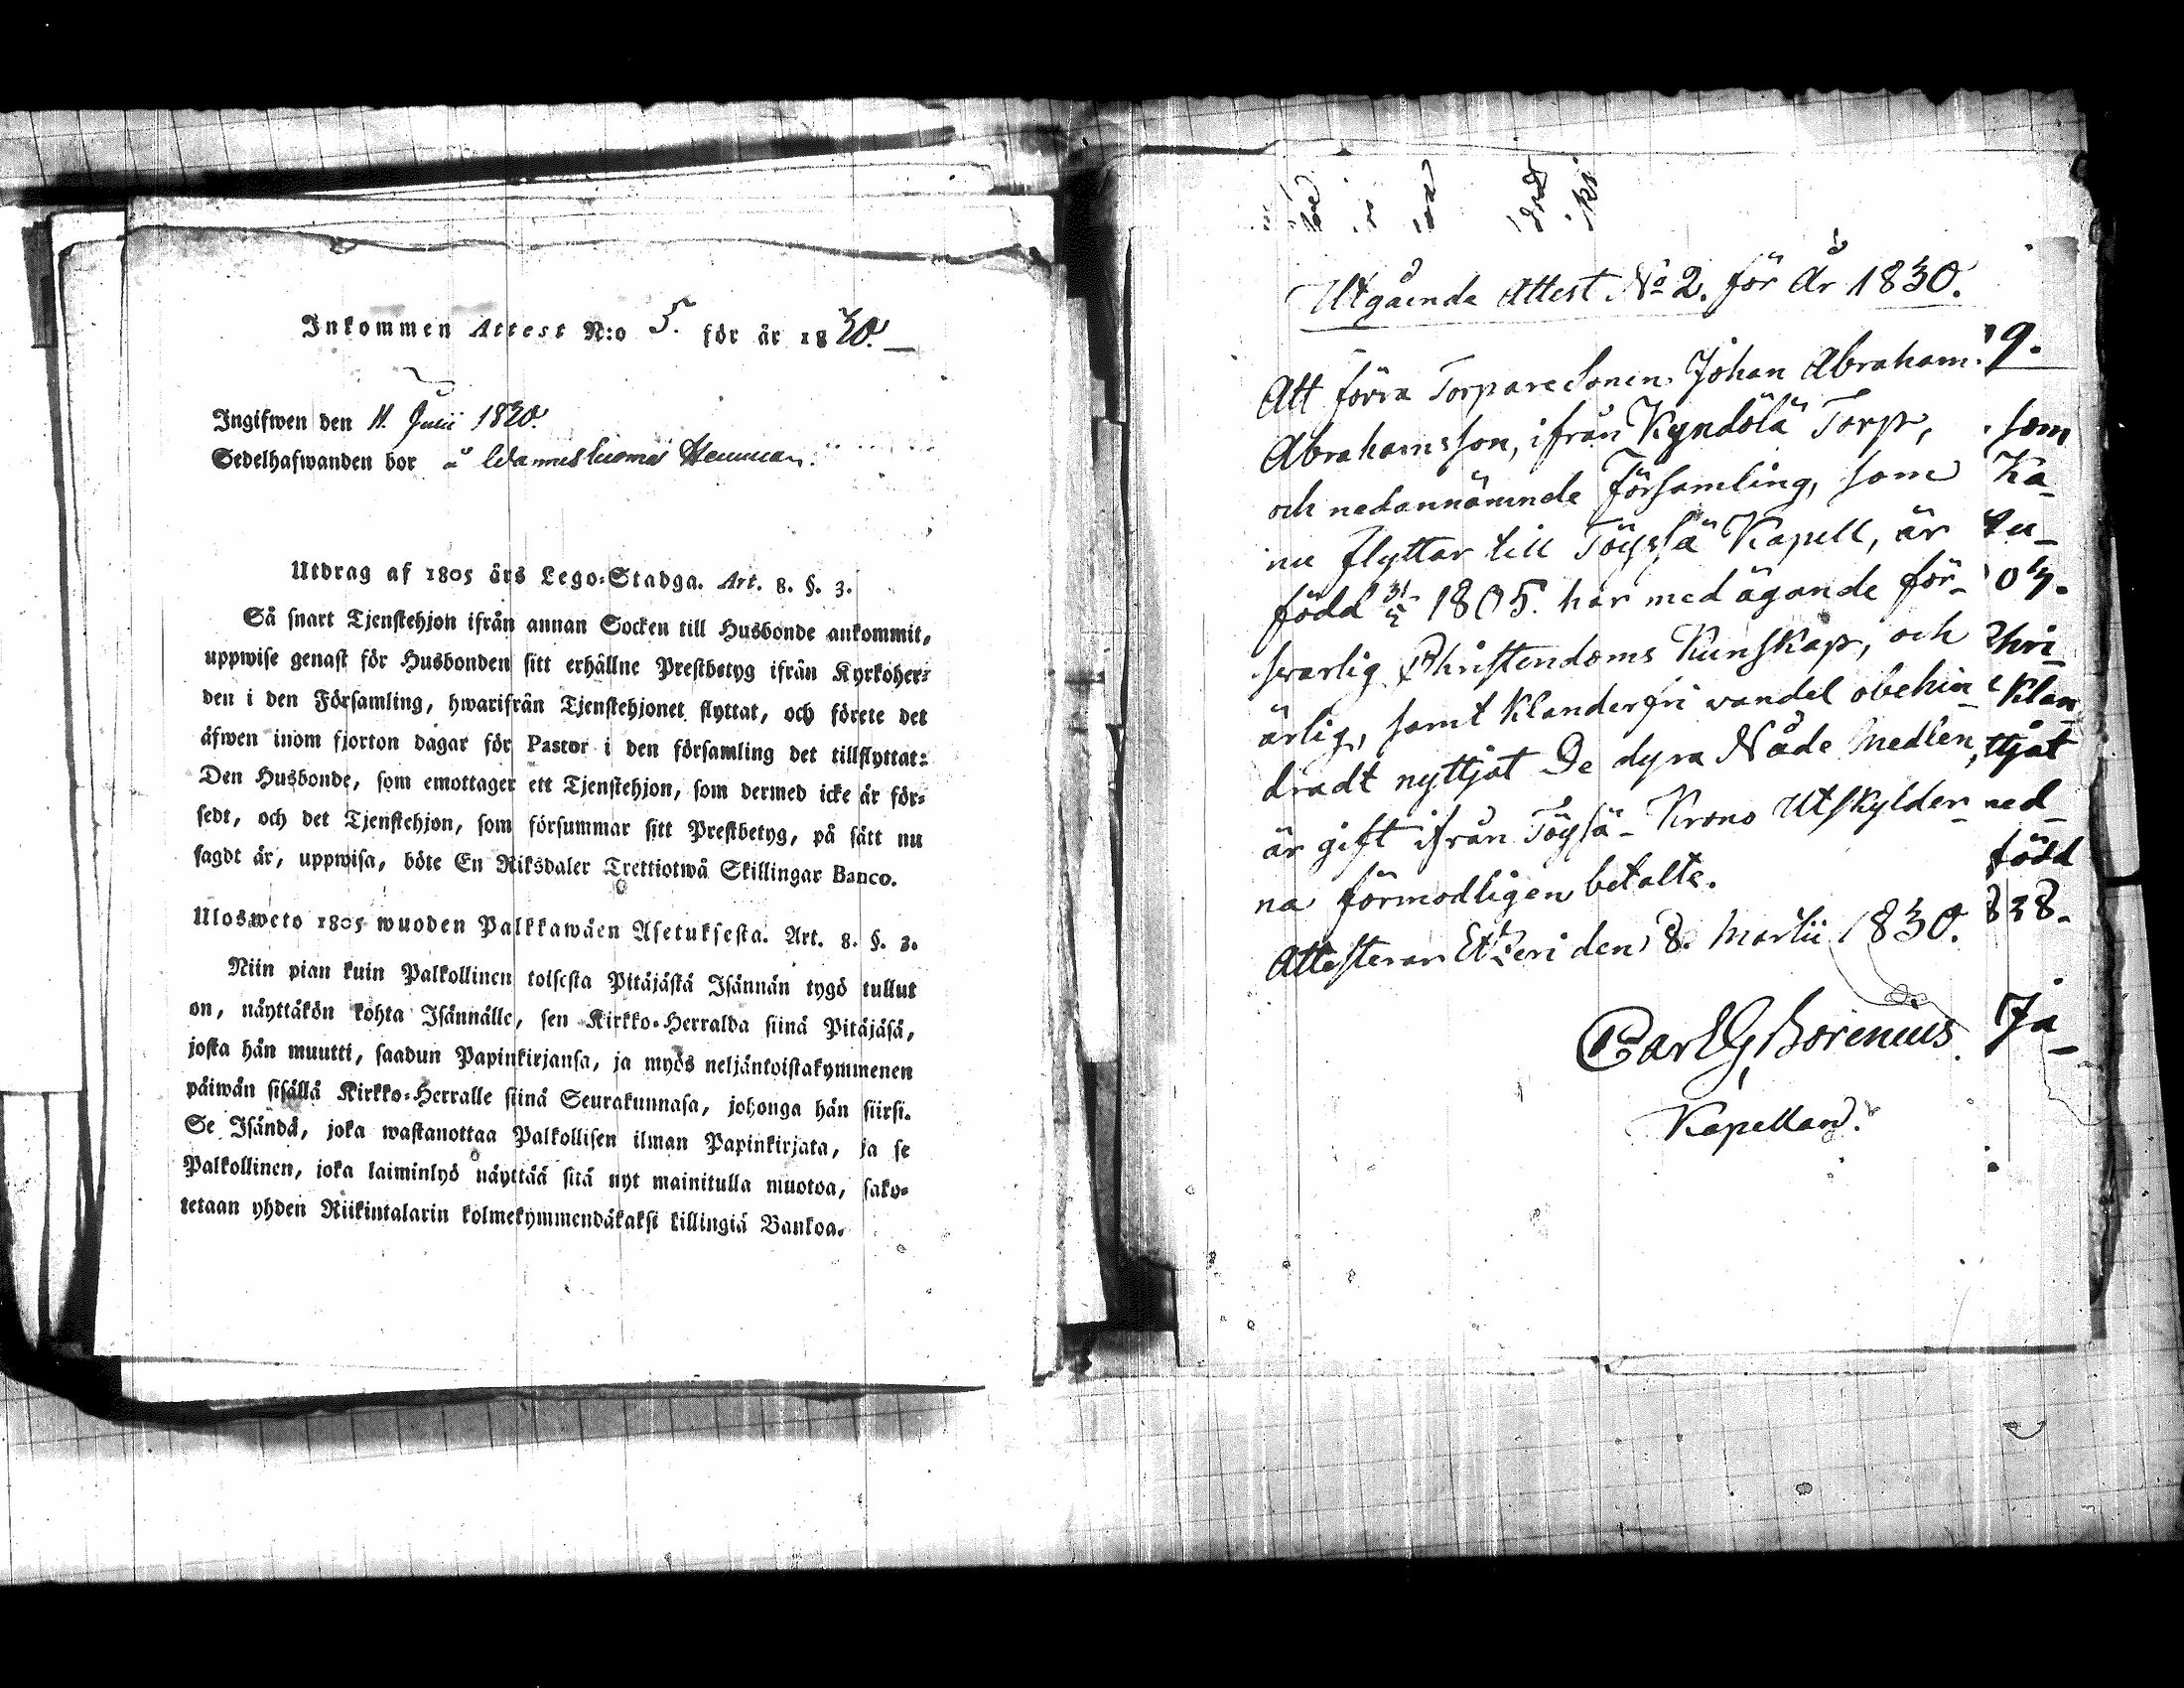 Inkommen Attest N:o 5. för år 1830.
Ingifwen den 11 Julii 1830.
Sedelhafwanden bor å Wannesluoma Hemman.
Utdrag af 1805 års Lego-Stadga. Art. 8. §. 3.
Så snart Tjenstehjon ifrån annan Socken till Husbonde ankommit,
uppwise genast för Husbonden sitt erhållne Prestbetyg ifrån Kyrkoher-
den i den Församling, hwarifrån Tjenstehjonet flyttat, och förete det
äfwen inom fjorton dagar för Pastor i den församling det tillflyttat:
Den Husbonde, som emottager ett Tjenstehjon, som dermed icke är för-
sedt, och det Tjenstehjon, som försummar sitt Prestbetyg, på sätt nu
sagdt är, uppwisa, böte En Riksdaler Trettiotwå Skillingar Banco.
Ulosweto 1805 wuoden Palkkawäen Asetuksesta. Art. 8. §. 3.
Niin pian kuin Palkollinen toisesta Pitäjästä Isännän tygö tullut
on, näyttäkön kohta Isännälle, sen Kirkko-Herralda siinä Pitäjäsä,
josta hän muutti, saadun Papinkirjansa, ja myös neljäntoistakymmenen
päiwän sisällä Kirkko-Herralle siinä Seurakunnasa, johonga hän siirsi.
Se Isändä, joka wastanottaa Palkollisen ilman Papinkirjata, ja se
Palkollinen, joka laiminlyö näyttää sitä nyt mainitulla muotoa, sako-
tetaan yhden Riikintalarin kolmekymmendäkaksi killingiä Bankoa.
Utgående Attest No 2. för År 1830.
Att förra Torpare Sonen Johan Abraham
Abrahamsson, ifrån Kyndölä Torp,
och nedannämnde Församling, som
nu flyttar till Töysä Kapell, är
född 31/5 1805. har med ägande för-
svarlig Christendoms Kunskap, och
ärlig, samt Klanderfri vandel obehin-
dradt nyttjat De dyra Nåde Medlen,
är gift ifrån Töysä- Krono Utskylder-
na förmodligen betalte.
Attesterar Etzeri den 8. Martii 1830.
Carl G Borenius.
Kapellan.
9.
som
Ka-
tu-
07.
Chri-
Klan
ttjat
ned-
född
838.
Ja-